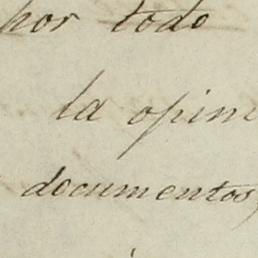 por todo
la opin
documentos,